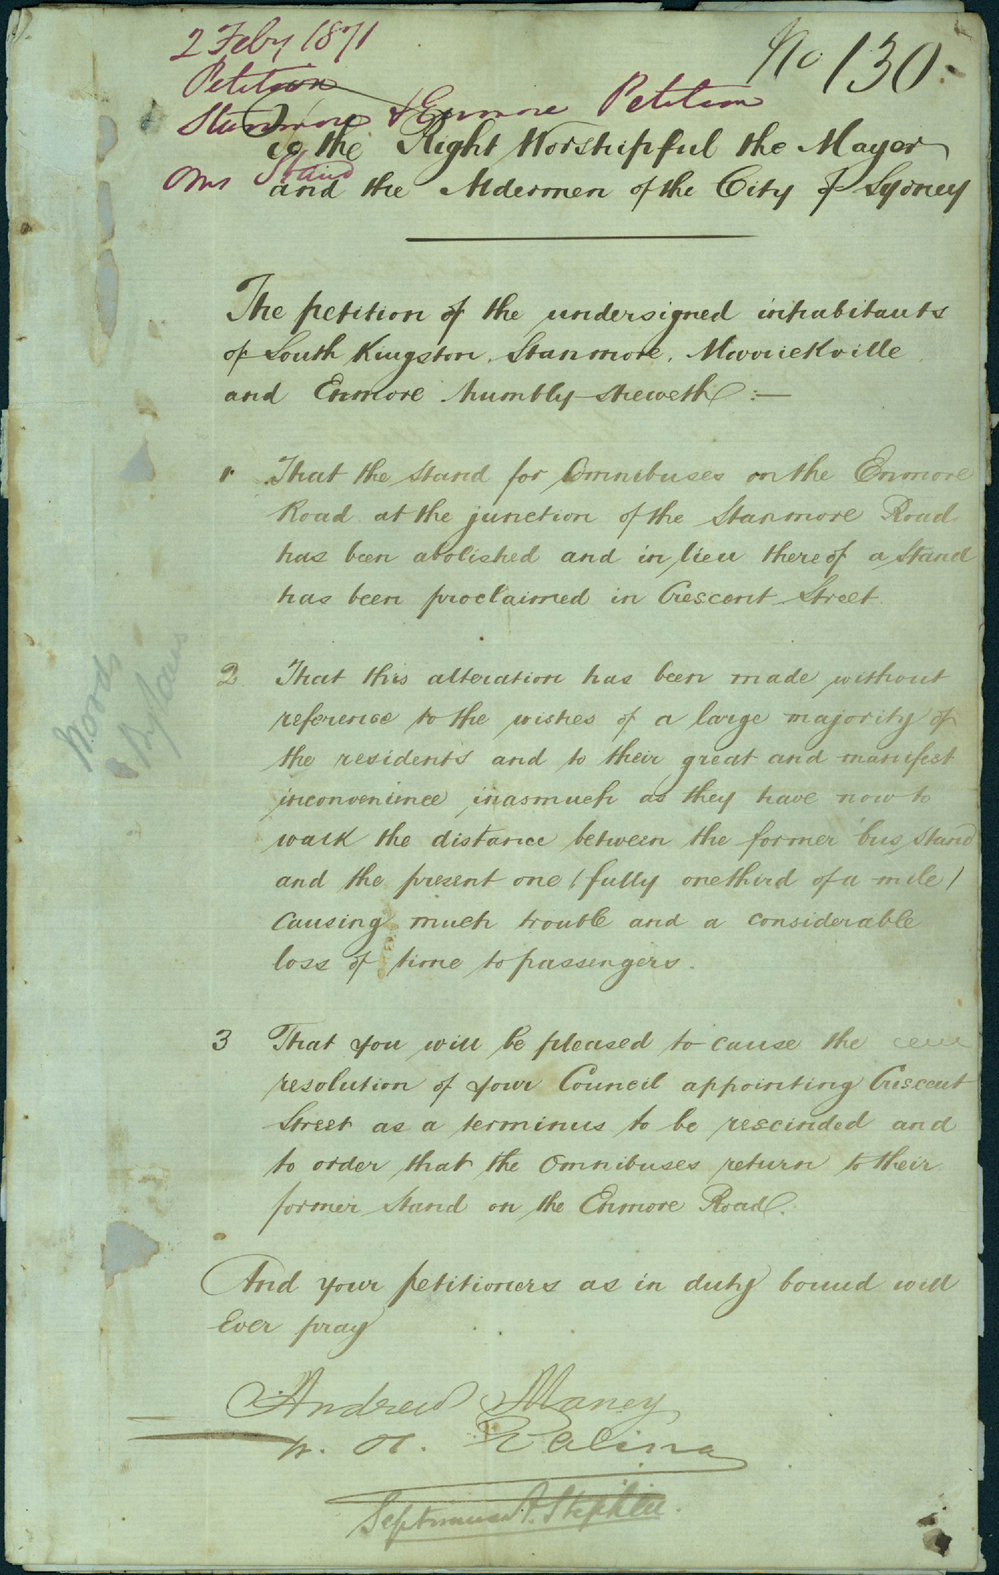 2 Feby 1871
No 130.
Petition
Stanmore & Enmore Petition
To the Right Worshipful the Mayor
Stand
and the Aldermen of the City of Sydney
The petition of the undersigned inhabitants
of South Kingston, Stanmore, Marrickville
and Enmore humbly sheweth :—
1 That the Stand for Omnibuses on the Enmore
Road at the junction of the Stanmore Road
has been abolished and in lieu thereof a Stand
has been proclaimed in Crescent Street.
2 That this alteration has been made without
reference to the wishes of a large majority of
the residents and to their great and manifest
inconvenience inasmuch as they have now to
walk the distance between the former 'bus stand
and the present one (fully one third of a mile)
causing much trouble and a considerable
loss of time to passengers.
3 That you will be pleased to cause the
resolution of your Council appointing Crescent
Street as a terminus to be rescinded and
to order that the Omnibuses return to their
former stand on the Enmore Road.
And your petitioners as in duty bound will
Ever pray
Andrew
Septimus A. Stephen.
Bylaws